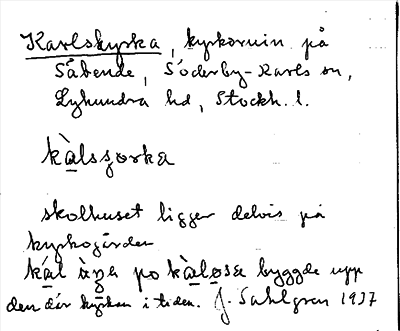 Karlskyrka, kyrkoruin på
Söderby-Karls sn,
Lyhundra hd, Stockh. l.
kàlsʒorka
skolhuset ligger delvis på
kyrkogården
byggde upp
den där kyrkan i tiden. J. Sahlgren 1937